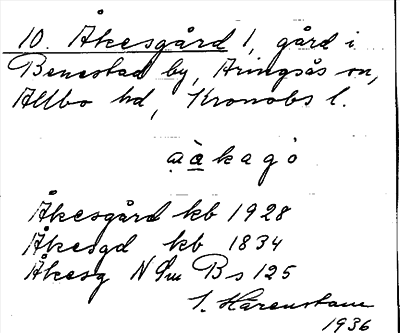 10. Åkesgård 1, gård i
Benestad by, Aringsås sn,
Allbo hd, Kronobs l.
a̤ à̱ k a g ò
Åkesgård kb 1928
Åkesgd kb 1834
Åkesg N Bs 125
Harenstam
1936